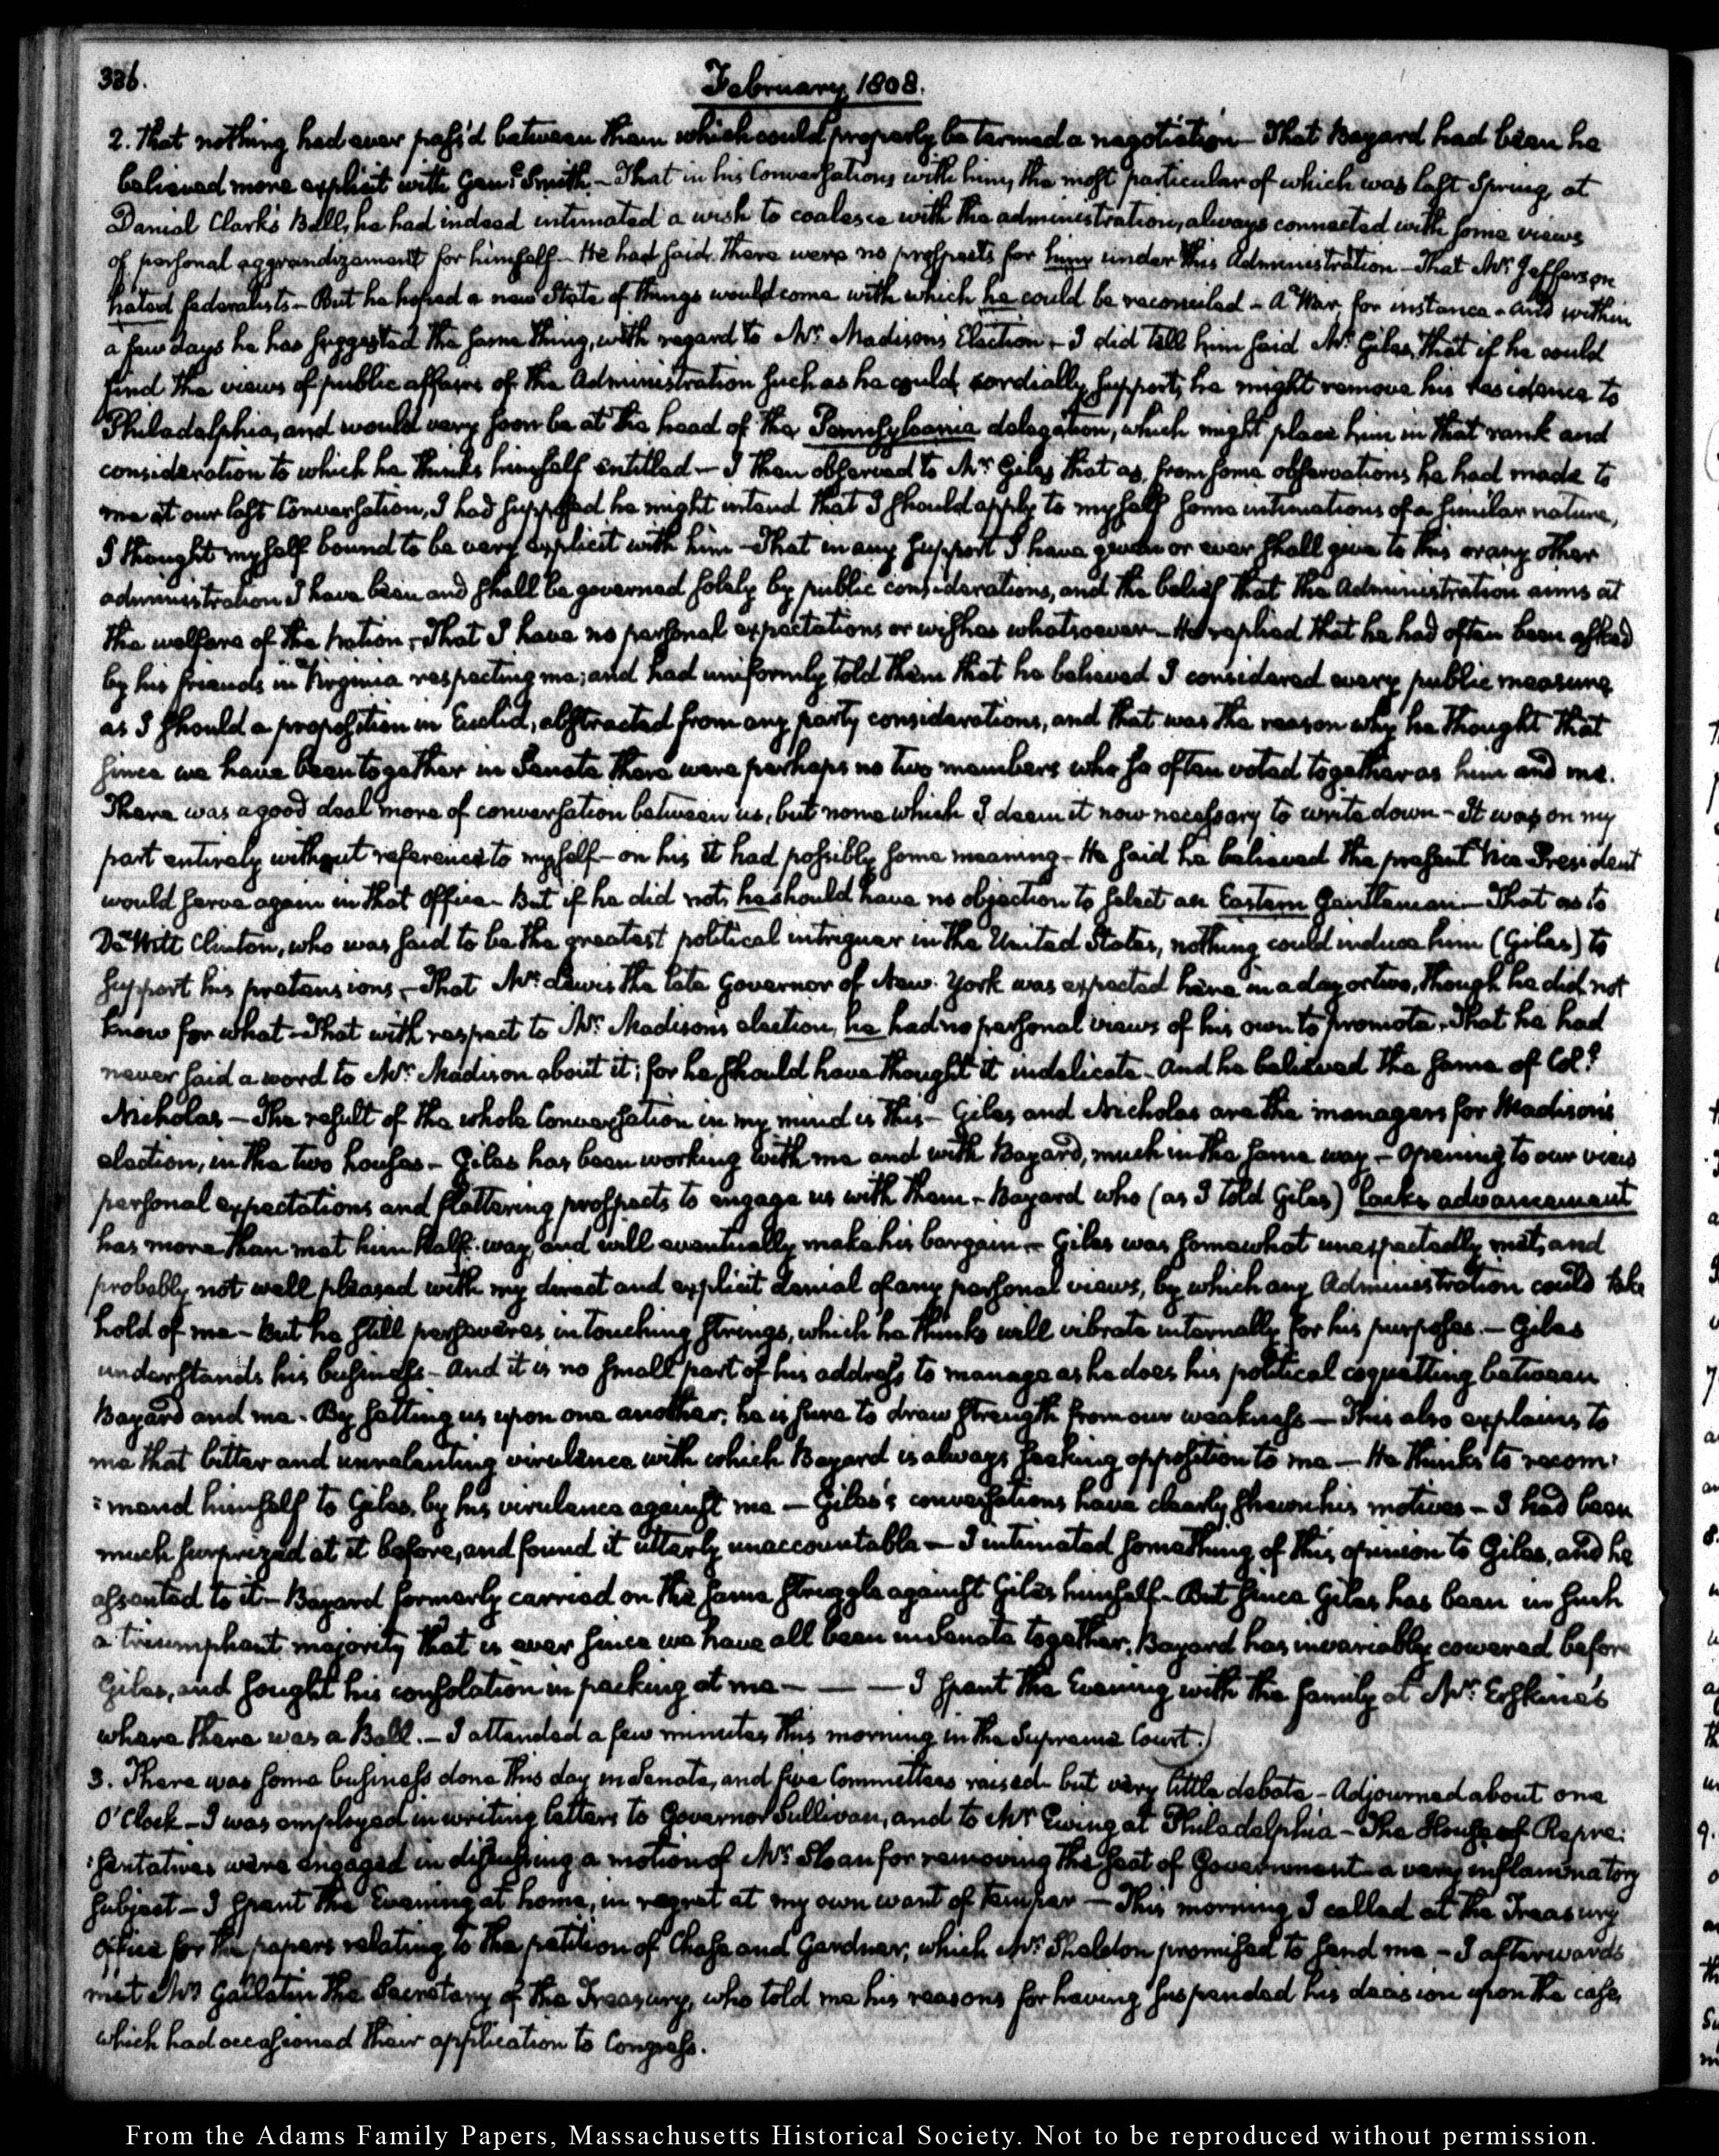 336.
February 1808.
2. That nothing had ever pass'd between them which could properly be termed a negotiation — That Bayard had been he
believed more explicit with Genl. Smith — That in his Conversations with him, the most particular of which was last Spring, at
Daniel Clark's Ball, he had indeed intimated a wish to coalesce with the administration, always connected with some views
of personal aggrandizement for himself — He had said there were no prospects for him under this Administration — That Mr. Jefferson
hated federalists — But he hoped a new State of things would come with which he could be reconciled — A War, for instance — and within
a few days he has suggested the same thing, with regard to Mr. Madison's Election — I did tell him said Mr. Giles, that if he could
find the views of public affairs of the Administration such as he could, cordially support, he might remove his residence to
Philadelphia, and would very soon be at the head of the Pennsylvania delegation, which might place him in that rank and
consideration to which he thinks himself entitled — I then observed to Mr. Giles that as, from some observations he had made to
me at our last Conversation, I had supposed he might intend that I should apply to myself some intimations of a similar nature,
I thought myself bound to be very explicit with him — That in any support I have given or ever shall give to this or any other
administration I have been and shall be governed solely by public considerations, and the belief that the Administration aims at
the welfare of the Nation — That I have no personal expectations or wishes whatsoever — He replied that he had often been asked
by his friends in Virginia respecting me; and had uniformly told them that he believed I considered every public measure
as I should a proposition in Euclid, abstracted from any party considerations, and that was the reason why he thought that
since we have been together in Senate there were perhaps no two members who so often voted together as him and me.
There was a good deal more of conversation between us, but none which I deem it now necessary to write down — It was on my
part entirely without reference to myself — on his it had possibly some meaning — He said he believed the present Vice-President
would serve again in that Office — But if he did not, he should have no objection to select an Eastern Gentleman — That as to
De Witt Clinton, who was said to be the greatest political intriguer in the United States, nothing could induce him (Giles) to
support his pretensions — That Mr. Lewis the late Governor of New-York was expected here in a day or two, though he did not
know for what — That with respect to Mr. Madison's election, he had no personal views of his own to promote. That he had
never said a word to Mr. Madison about it; for he should have thought it indelicate — And he believed the same of Coll.
Nicholas — The result of the whole Conversation in my mind is this — Giles and Nicholas are the managers for Madison's
election, in the two houses — Giles has been working with me and with Bayard, much in the same way — Opening to our view
personal expectations and flattering prospects to engage us with them — Bayard who (as I told Giles) lacks advancement
has more than met him half-way and will eventually make his bargain — Giles was somewhat unexpectedly met, and
probably not well pleased with my direct and explicit denial of any personal views, by which any Administration could take
hold of me — But he still perseveres in touching strings, which he thinks will vibrate internally for his purposes. — Giles
understands his business — And it is no small part of his address to manage as he does his political coquetting between
Bayard and me. By setting us upon one another, he is sure to draw strength from our weakness — This also explains to
me that bitter and unrelenting virulence with which Bayard is always seeking opposition to me — He thinks to recom:
:mend himself to Giles, by his virulence against me — Giles's conversations have clearly shewn his motives — I had been
much surprized at it before, and found it utterly unaccountable — I intimated something of this opinion to Giles, and he
assented to it — Bayard formerly carried on the same struggle against Giles himself — But since Giles has been in such
a triumphant majority that is ever since we have all been in Senate together, Bayard has invariably cowered before
Giles, and sought his consolation in pecking at me — — — I spent the Evening with the family at Mr. Erskine's
where there was a Ball. — I attended a few minutes this morning in the Supreme Court.)
3. There was some business done this day in Senate, and five Committees raised — but very little debate — Adjourned about one
O'Clock — I was employed in writing letters to Governor Sullivan, and to Mr. Ewing at Philadelphia — The House of Repre:
:sentatives were engaged in discussing a motion of Mr. Sloan for removing the seat of Government — a very inflammatory
subject — I spent the Evening at home, in regret at my own want of temper — This morning I called at the Treasury
Office for the papers relating to the petition of Chase and Gardner, which Mr. Sheldon promised to send me — I afterwards
met Mr. Gallatin the Secretary of the Treasury, who told me his reasons for having suspended his decision upon the case,
which had occasioned their application to Congress.
From the Adams Family Papers, Massachusetts Historical Society. Not to be reproduced without permission.